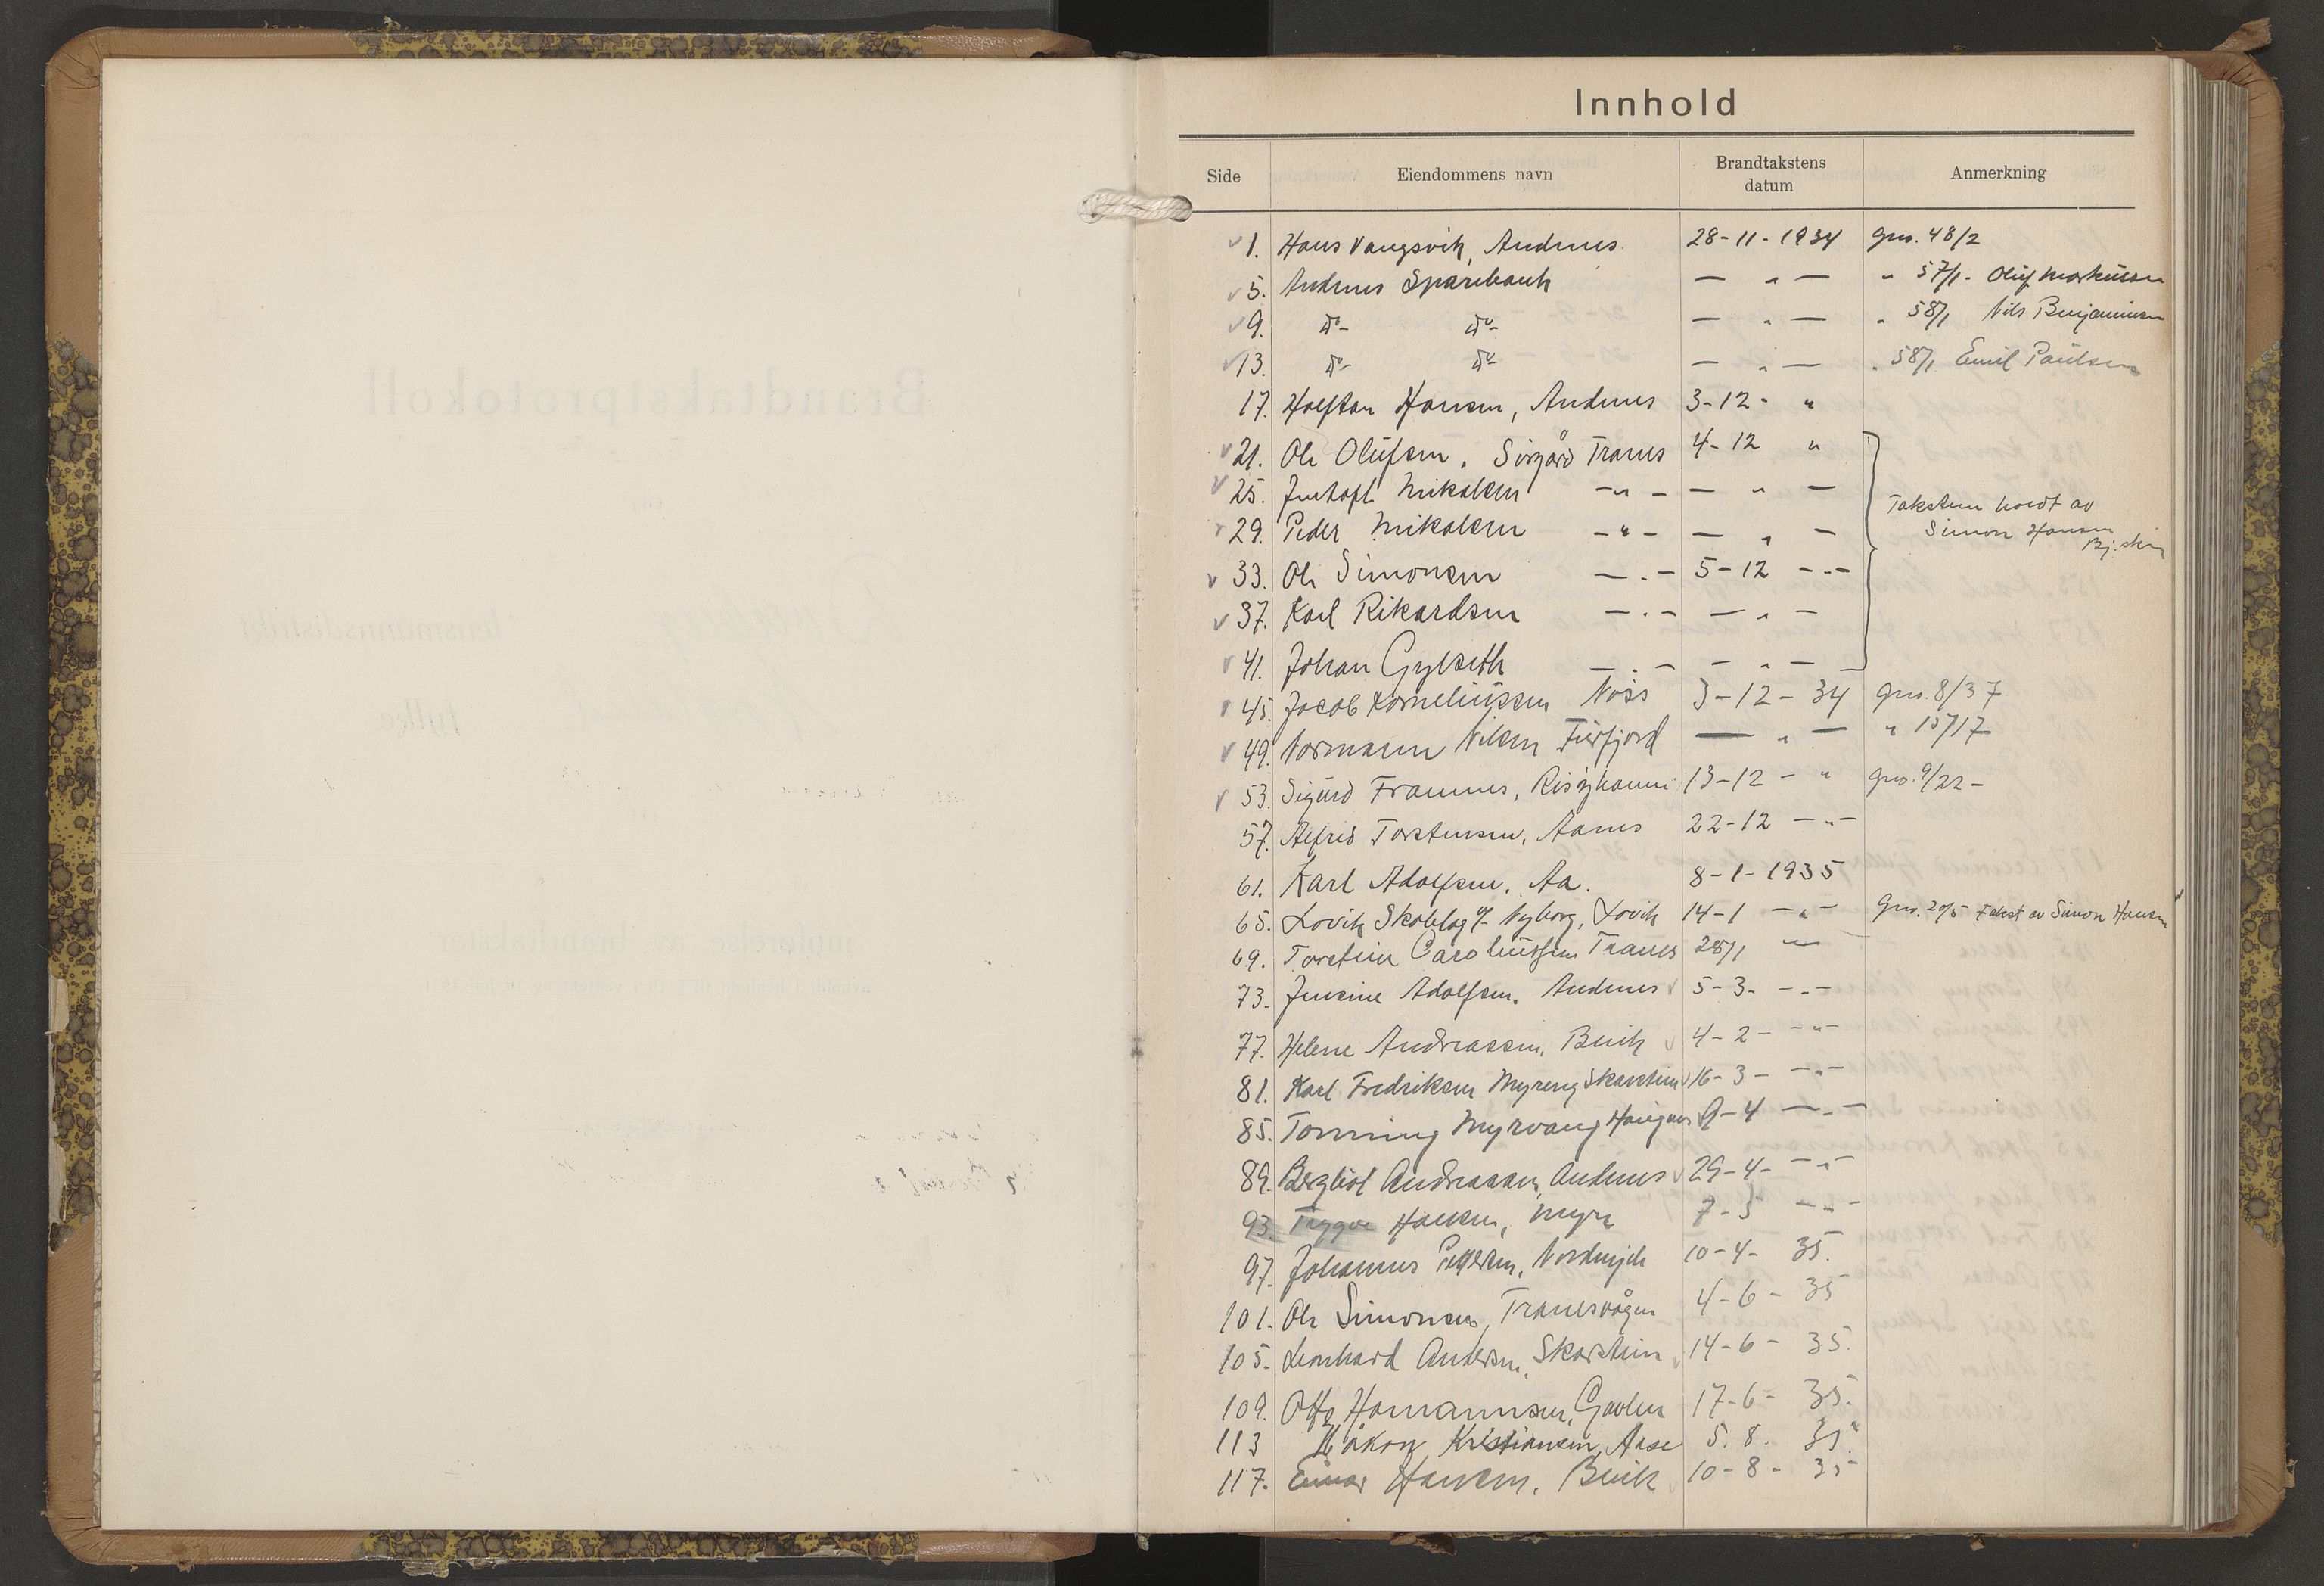 Innhold
Side Eiendommens navn Brandtakstens datum Anmerkning
1. Hans Vangsvik, Andenes 28-11-1934 gno. 48/2
5. Andenes Sparebank — " — " 57/1 - Oluf Markussen
9. do- do- — " — " 58/1 Nils Benjaminsen
13. do- do- — " — " 58/1 Emil Paulsen
17. Halfdan Hansen, Andenes 3-12- "
21. Ole Olufsen, Sørgård Tranes 4-12 "
25. Mikalsen -"- — " —
29. Peder Mikalsen -"- — " —
Taksten holdt av
Simon Hansen
33. Ole Simonsen -"- 5-12 -"-
37. Karl Rikardsen -"- — " —
41. Johan Gylseth -"- — " —
45. Jacob Korneliussen Nøss 3-12-34 gno. 8/37
49. Normann Nilsen — " — " 15/17
53. Sigurd Framnes, Risøyhamn 13-12 - " gno. 9/22 -
57. Alfred Torstensen, Aanes 22-12 -"-
61. Karl Adolfsen, Aa. 8-1-1935
65. Lovik Skolelag Nyborg, Lovik 14-1 -"- Gno. 20/5 Takst av Simon Hansen
69. Torstein Caroliussen Tranes 28/1 "
73. Jensine Adolfsen, Andenes 5-3- -"-
77. Helene Andreassen, Bleik 4-2- -"-
81. Karl Fredriksen Myreng Skarstein 16-3- -"-
85. Tomming Myrvang Haugnes 9-4 -"-
89. Bergliot Andreassen, Andenes 29-4- -"-
93. Trygve Hansen, Myre 7-5 -"-
97. Johannes Pedersen, 10-4- 35.
101. Ole Simonsen, Tranesvågen 4-6- 35
105. Leonhard Andersen, Skarstein 14-6- 35.
109. Otto Hermansen, Gavlen 17-6- 35.
113 Håkon Kristiansen, Aase 5. 8. 35.
117. Einar Hansen, Bleik 10-8- 35